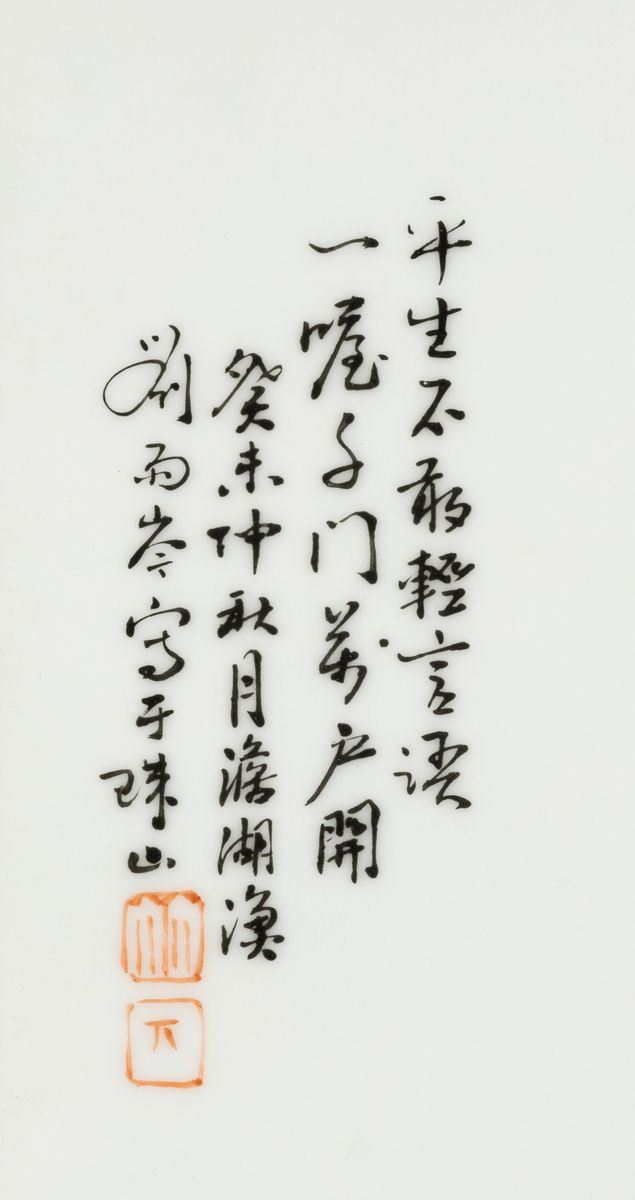 平生不敢輕言語
一喔千门萬户開
癸未仲秋月澹湖漁
劉雨岑寫于珠山